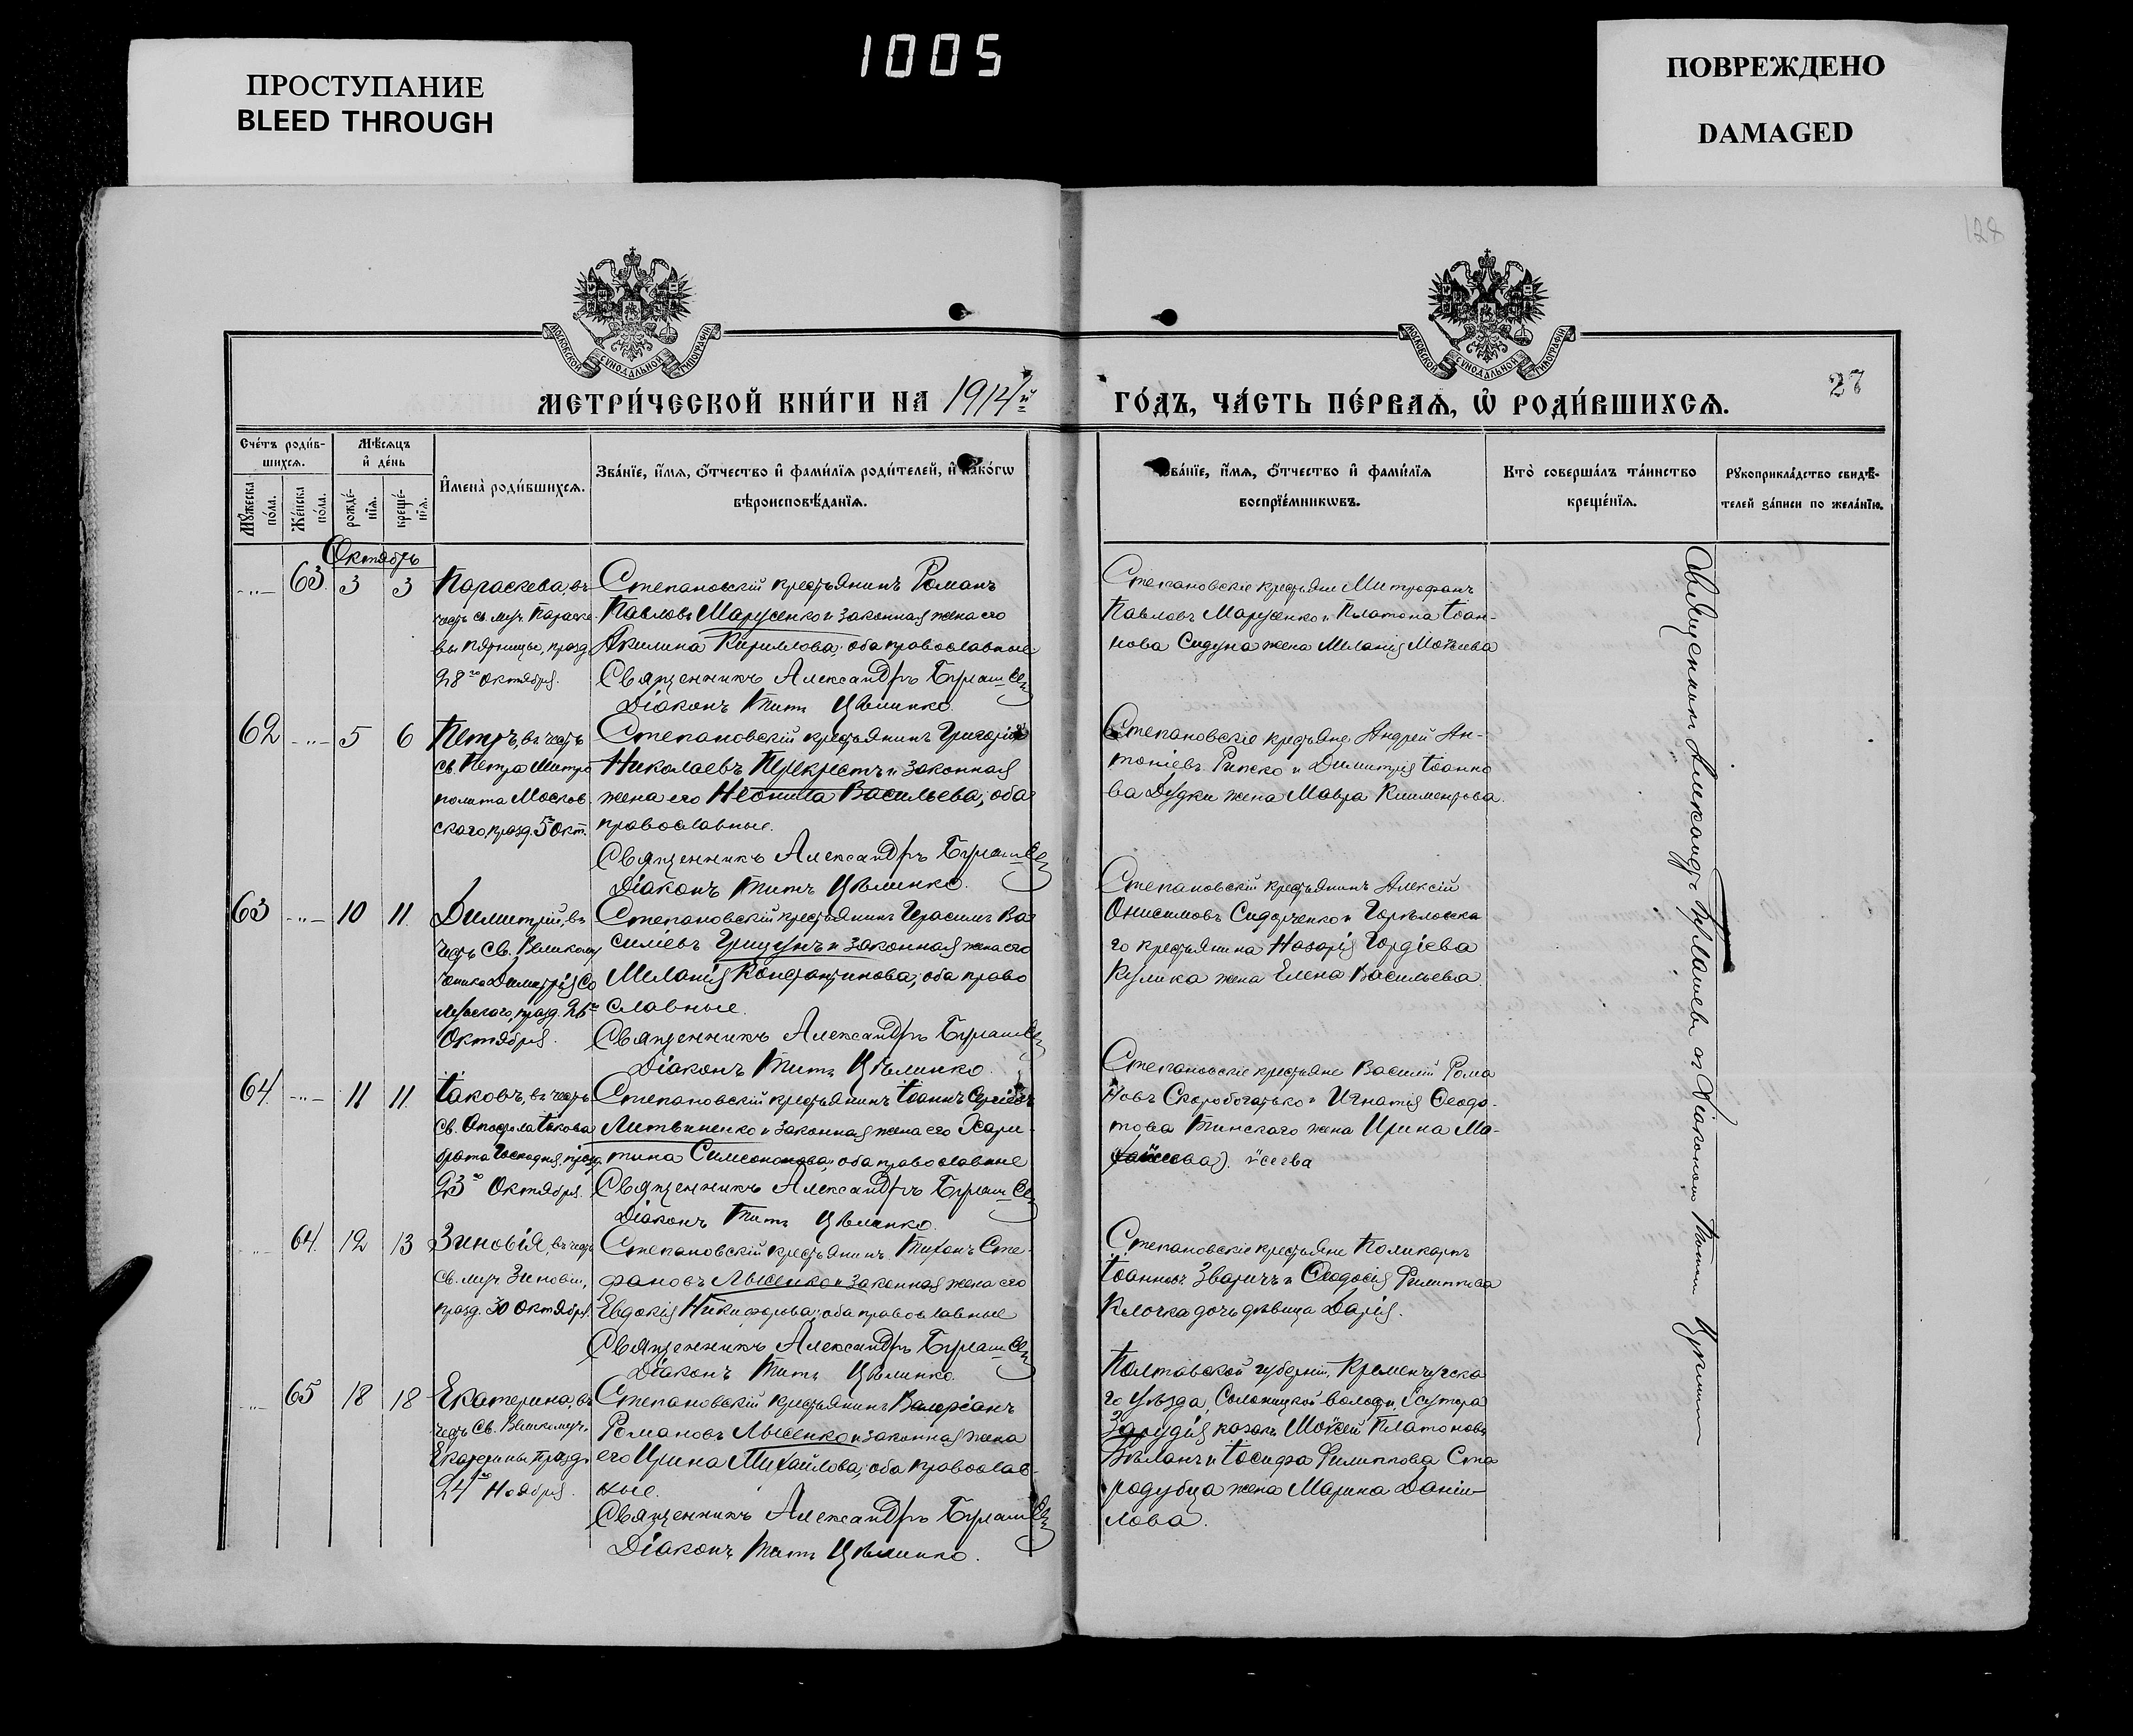 ПРОСТУПАНИЕ
BLEED THROUGH
1005
ПОВРЕЖДЕНО
DAMAGED
128
МОСКОВСКОЙ СУНОДАЛЬНОЙ ТИПОГРАФІИ
МОСКОВСКОЙ СУНОДАЛЬНОЙ ТИПОГРАФІИ
МЕТРИ́ЧЕСКОЙ КНИ́ГИ НА 1914й
ГО́ДЪ, ЧА́СТЬ ПЕ́РВАѦ, Ѡ҆ РОДИ́ВШИХСѦ.
27
Сче́тъ роди́в-
шихсѧ.
Мꙋ́жеска по́ла.
Же́нска по́ла.
Мѣ́сѧцъ
и҆ де́нь
рожде́-
нїѧ.
креще́-
нїѧ.
И҆мена̀ роди́вшихсѧ.
Зва́нїе, и҆́мѧ, ѻ҆́тчество и҆ фами́лїѧ роди́телей, и҆ како́гѡ
вѣроисповѣ́данїѧ.
Зва́нїе, и҆́мѧ, ѻ҆́тчество и҆ фами́лїѧ
воспрїе́мникѡвъ.
Кто̀ соверша́лъ та́инство
креще́нїѧ.
Рꙋкоприкла́дство свидѣ́-
телей за́писи по жела́нїю.
Октябрь
63 3 3
Параскева, въ
честь св. муч. Параске
вы Пятницы, празд.
28го Октября.
Степановскій крестьянинъ Романъ
Павловъ Марусенко и законная жена его
Акилина Кириллова, оба православные
Священникъ Александръ
Діаконъ Титъ
Степановскіе крестьяне Митрофанъ
Павловъ Марусенко и Платона Іоан-
нова Сидуна жена Меланія Моѵсеева
62 5 6
Петръ, въ честь
св. Петра Митро
полита Москов.
скаго, празд. 5го Окт.
Степановскій крестьянинъ Григорій
Николаевъ Перекрестъ и законная
жена его Неонила Васильева, оба
православные.
Священникъ Александръ
Діаконъ Титъ
Степановскіе крестьяне Андрей Ан-
тоніевъ и Димитрія Іоанно
ва Дудки жена Мавра Климентова.
63 10 11
Димитрій, въ
честь Св. Великому
ченика Димитрія Со
лунскаго, празд. 26го
Октября.
Степановскій крестьянинъ Герасимъ Ва
силіевъ Грицунъ и законная жена его
Меланія Константинова, оба право
славные.
Священникъ Александръ
Діаконъ Титъ
Степановскій крестьянинъ Алексій
Онисимовъ Сидорченко и
го крестьянина Назарія Гордіева
Кулика жена Елена Васильева.
64 11 11
Іаковъ, въ честь
Св. Апостола Іакова
брата Господня, празд.
23го Октября.
Степановскій крестьянинъ Іоаннъ Сергіевъ
Литвиненко и законная жена его Хари-
тина Симеонова, оба православные
Священникъ Александръ
Діаконъ Титъ
Степановскіе крестьяне Василій Рома
новъ Скоробогатько и Игнатія Ѳеодо-
това Тинскаго жена Ирина Мо-
ѵсеева
64 12 13
Зиновія, въ честь
Св. муч. Зиновіи,
празд. 30 Октября.
Степановскій крестьянинъ Тихонъ Сте-
фановъ Лысенко и законная жена его
Евдокія Никифорова, оба православные
Священникъ Александръ
Діаконъ Титъ
Степановскіе крестьяне Поликарпъ
Іоанновъ Зваричъ и Ѳеодосія Филиппова
Клочка дочь дѣвица Дарія.
65 18 18
Екатерина, въ
честь Св. Великомуч.
Екатерины, празд.
24го Ноября.
Степановскій крестьянинъ Валеріанъ
Романовъ Лысенко и законная жена
его Ирина Михайлова, оба православ-
ные.
Священникъ Александръ
Діаконъ Титъ
Полтавской губерніи, Кременчугска
го уѣзда, Солоницкой волости, хутора
козакъ Моѵсей Платоновъ
Бѣланъ и Іосифа Филиппова Ста
родубца жена Марина Даніи-
лова.
Священникъ Александръ съ Діакономъ Титомъ